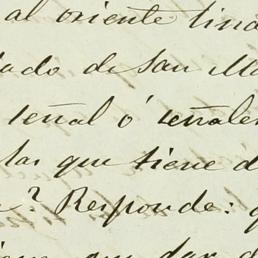 al oriente lina
lado de San Ma
señal ó señale
las que tiene d
? Responde: q
que dar d